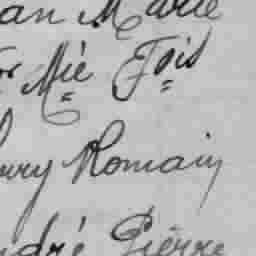 an Marie
Mie Fois
ry Romain
ndré Pierre